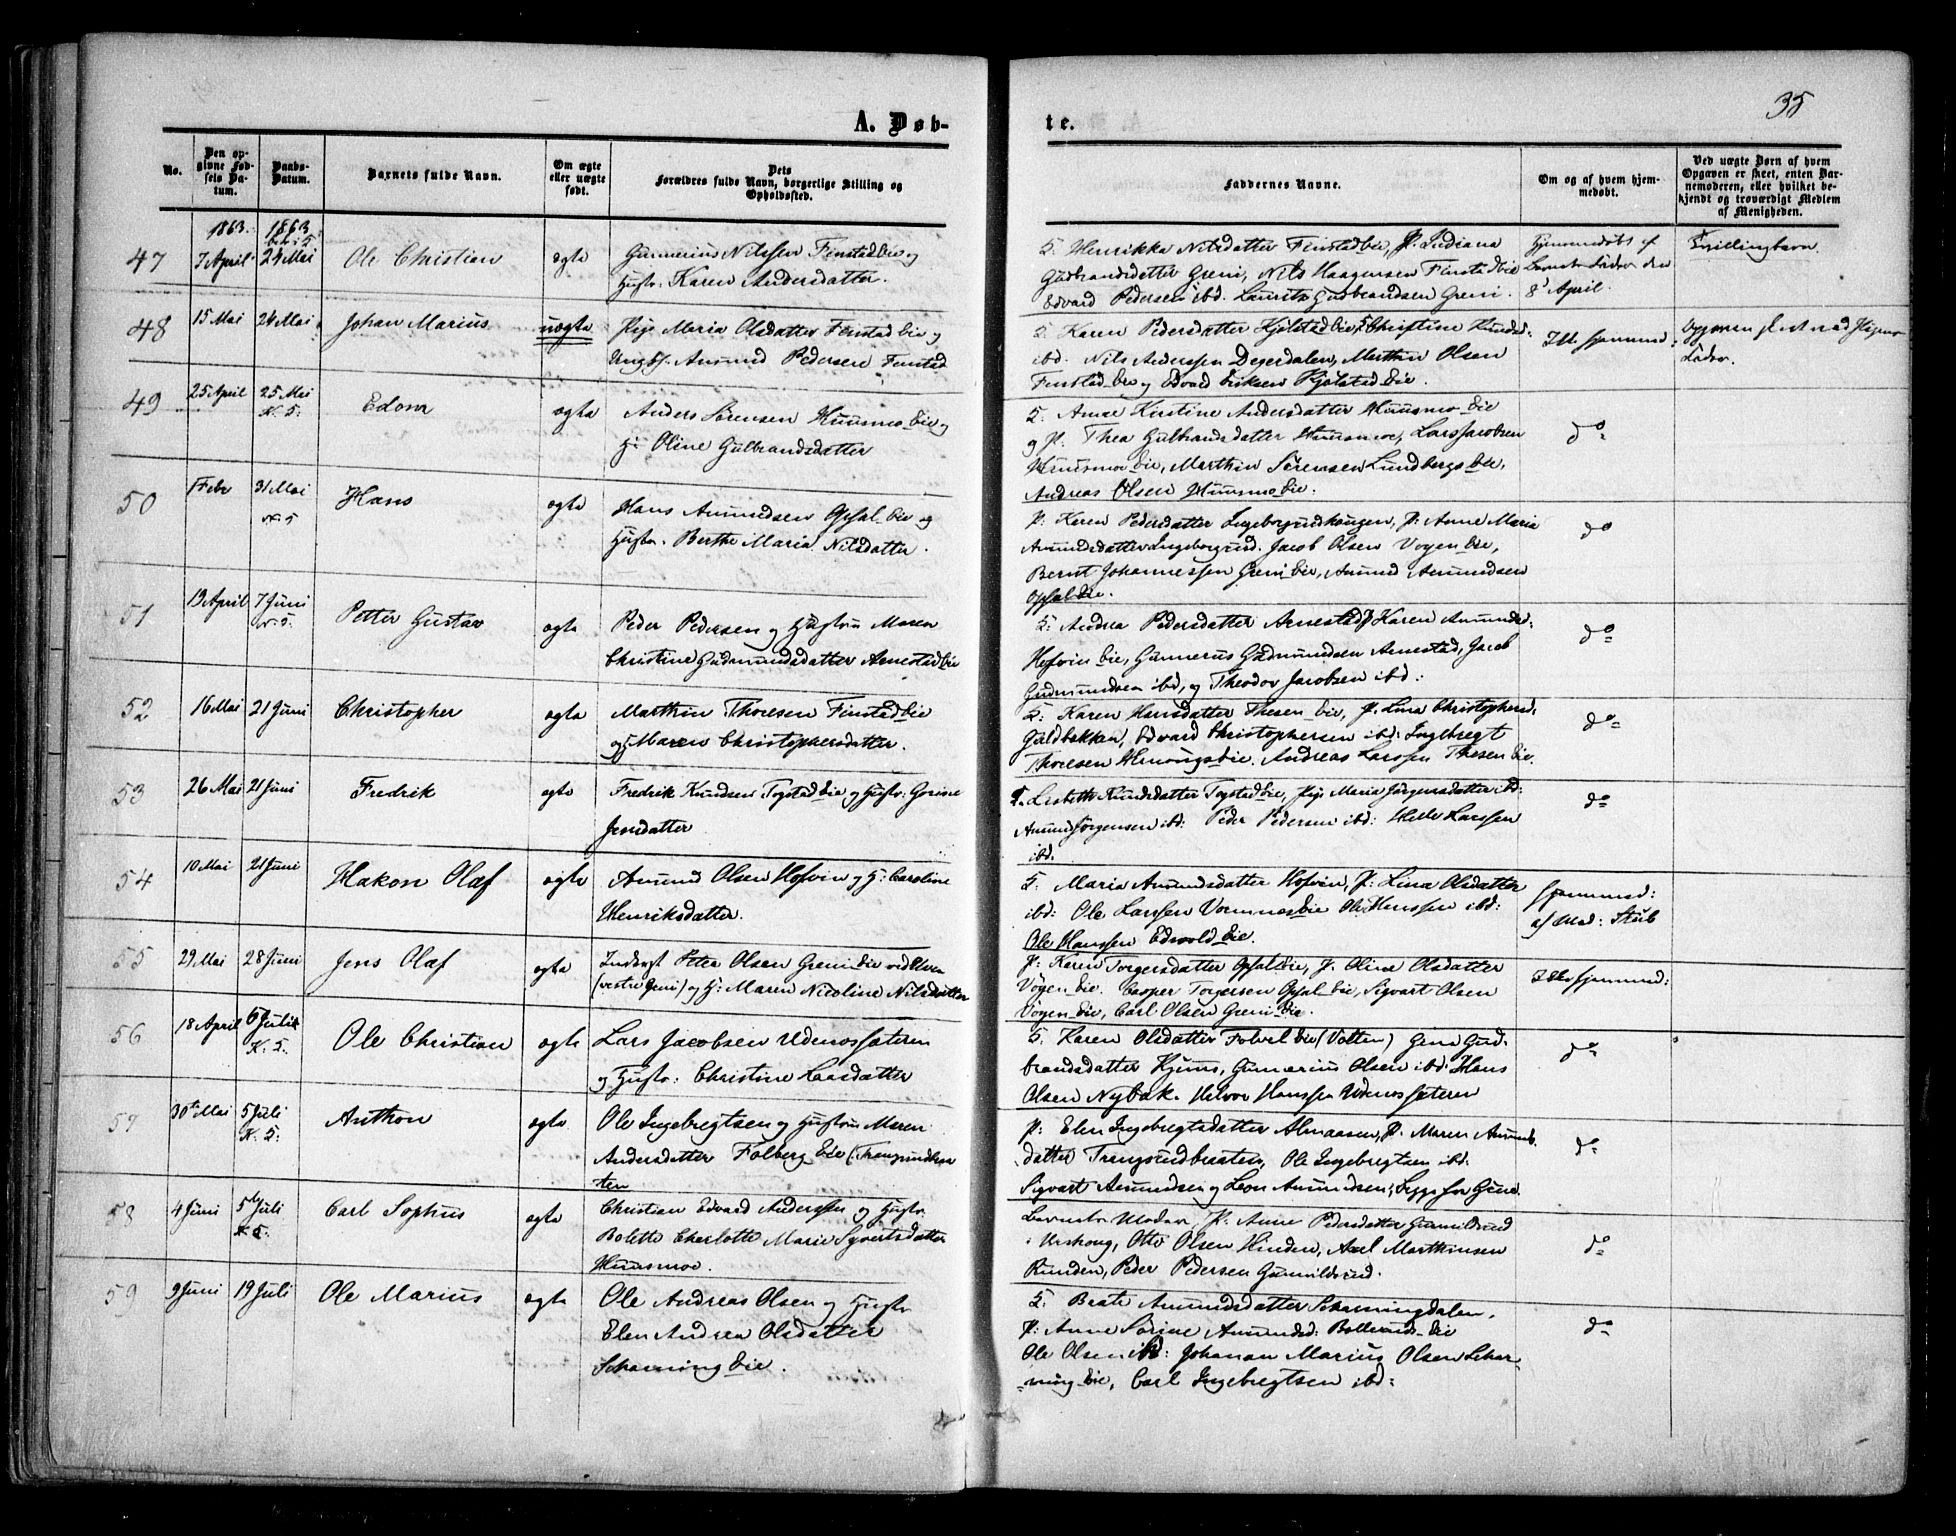 35
A. Døb-
te.
No.
Den op-
givne Fød-
sels Da-
tum.
Daabs-
Datum.
Barnets fulde Navn.
Om ægte
eller uægte
født.
Dets
Forældres fulde Navn, borgerlige Stilling og
Opholdssted.
Faddernes Navne.
Om og af hvem hjem-
medøbt.
Ved uægte Børn af hvem
Opgaven er skeet, enten Bar-
nemoderen, eller hvilket be-
kjendt og troværdigt Medlem
af Menigheden.
1863. 1863
47 7 April 24 Mai Ole Christian ægte Gunnerius Nilssen Finstadeie og
Hustr: Karen Andersdatter.
Henrikka Nilsdatter Finstadeie, P. Indiana
Gudbrandsdatter Greni, Nils Haagensen Finstadeie
Edvard Pedersen ibd. Laurits Gudbrandsen Greni.
Hjemmedøbt af
Barnets Fader den
8 April.
Tvillingbarn.
48 15 Mai 24 Mai Johan Marius uægte Pige Maria Olsdatter Finstadeie og
Ungk. Amund Pedersen Finstad
Karen Pedersdatter Kjølstadeie, Christine Knudsd:
ibd. Nils Anderssen Degerdalen, Marthin Olsen
Finstadeie og Edvard Eriksen Kjølstadeie.
Ikke hjemmed:
Fader.
49 25 April 25 Mai
K. S.
Edom ægte Anders Sørensen Huusmo eie og
H: Oline Gulbrandsdatter
Anne Kirstine Andersdatter Huusmo eie
og P. Thea Gulbrandsdatter Huusmoe, Lars Jacobsen
Huusmo eie, Marthin Sørensen Lundbergs eie,
Andreas Olsen Huusmo eie.
do
50 Febr 31 Mai Hans ægte Hans Amundsen Opsal eie og
Hustr. Berthe Maria Nilsdatter.
P: Karen Pedersdatter Ingeborgrudhaugen, P: Anne Maria
Amundsdatter Ingeborgrud. Jacob Olsen Vøyen eie,
Bernt Johannessen Greni eie, Amund Amundsen
Opsaleie.
do
51 13 April 7 Juni Petter Gustav ægte Peder Pedersen og Hustru Maren
Christine Gudmundsdatter Arnestad eie
Andrea Pedersdatter Arnestad, P Karen Amunds:
Hofvin eie, Gunnerus Gudmundsen Arnestad, Jacob
Gudmundsen ibd, og Theodor Jacobsen ibd:
do
52 16 Mai 21 Juni Christopher ægte Marthin Thoresen Finstadeie
og Maren Christophersdatter.
Karen Hansdatter Thesen eie, P. Lina Christophersd:
Guldbakken, Edvard Christophersen ibd: Ingebregt
Thoresen eie. Andreas Larssen Thesen eie.
do
53 26 Mai 21 Juni Fredrik ægte Fredrik Knudsen Togstadeie og Hustr: Gorine
Jensdatter
Lisbeth Knudsdatter Togstadeie, Pige Maria Jørgensdatter ibd:
Amund Jørgensen ibd: Peder Pedersen ibd: Helle Larssen
ibd.
do
54 10 Mai 21 Juni Hakon Olaf ægte Amund Olsen Hofvin og H: Caroline
Henriksdatter.
Maria Amundsdatter Hofvin, P: Lina Olsdatter
ibd: Ole Larssen Vormnes eie Ole Hanssen ibd:
Ole Hanssen Edsvold eie.
Hjemmed:
af Mad: Stub
55 29 Mai 28 Juni Jens Olaf ægte Inderst Peter Olsen Greni eie ved Elven
(vestre Greni) og H: Maren Nicoline Nilsdatter
P: Karen Torgersdatter Opsaleie, P. Oline Olsdatter
Vøyen eie. Casper Torgersen Opsal eie, Sigvart Olsen
Vøyen eie, Carl Olsen Greni eie.
Ikke hjemmed:
56 18 April Juli
K. S.
Ole Christian ægte Lars Jacobsen Udenossæteren
og Hustr: Christine Larsdatter
Karen Olsdatter Folvel eie (Volten) Gina Gud-
brandsdatter Hjuus, Gunnerius Olsen ibd: Hans
Olsen Nybak. Halvor Hanssen Udenossæteren
do
57 30te Mai 5 Juli
K. S.
Anthon ægte Ole Ingebregtsen og Hustru Maren
Andersdatter Folberg eie (Trangsrudbraa
ten
P: Elen Ingebregtsdatter Almaasen, P. Maren Amunds
datter Trangsrudbraaten, Ole Ingebregtsen ibd.
Sigvart Amundsen og Leon Amundsen,
do
58 4 Juni 5 Juli Carl Sophus ægte Christian Edvard Anderssen og Hustr.
Bolette Charlotte Marie Syvertsdatter
Huusmoe.
Barnets Moder, P. Anne Pedersdatter Gunnildsrud
i Urskoug, Otto Olsen Hinden, Axel Marthinsen
Runden, Peder Pedersen Gunnildsrud.
do
59 9 Juni 19 Juli Ole Marius ægte Ole Andreas Olsen og Hustr
Elen Andrea Olsdatter
Scharning eie.
Beate Amundsdatter Scharningdalen,
P: Anne Sørine Amundsd: Bollerud eie
Ole Olsen ibd: Johanan Marius Olsen Schar-
ning eie, Carl Ingebregtsen ibd:
do